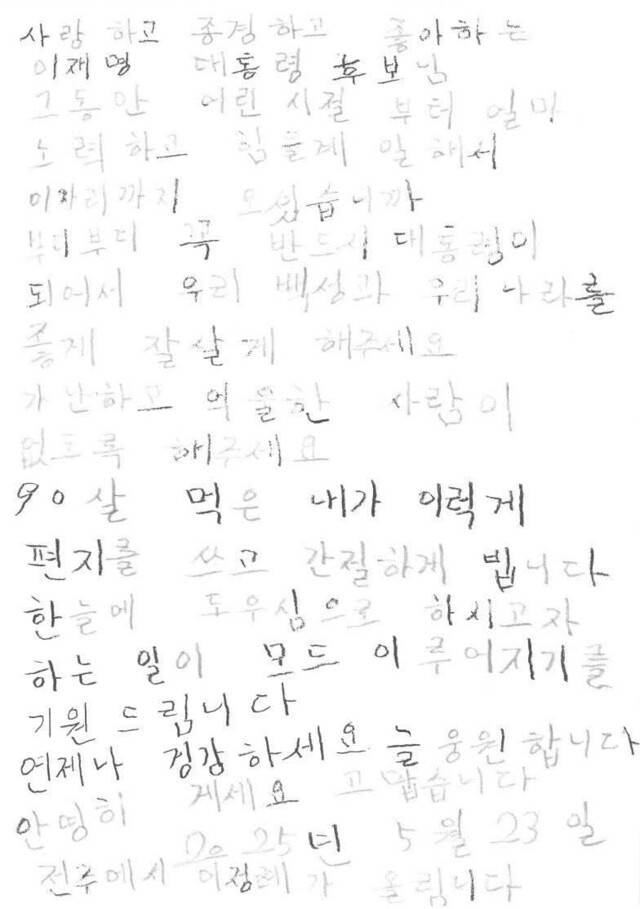 사랑 하고 종경하고 좋아하는
이재명 대통령 후보님
그동안 어린 시절 부터 얼마
노력하고 힘들게 일 해서
이자리까지 오싰습니까
부디부디 꼭 반드시 대통령이
되어서 우리 백성과 우리 나라를
좋게 잘살게 해주세요
가난하고 억울한 사람이
없도록 해주세요
90살 먹은 내가 이렇게
편지를 쓰고 간절하게 빕니다
한늘에 도우심으로 하시고자
하는 일이 모드 이루어지기를
기원 드립니다
언제나 겅강하세요 늘 웅원합니다
안영히 게세요 고맙습니다
2025년 5월 23일
전주에서 이정례가 올림니다